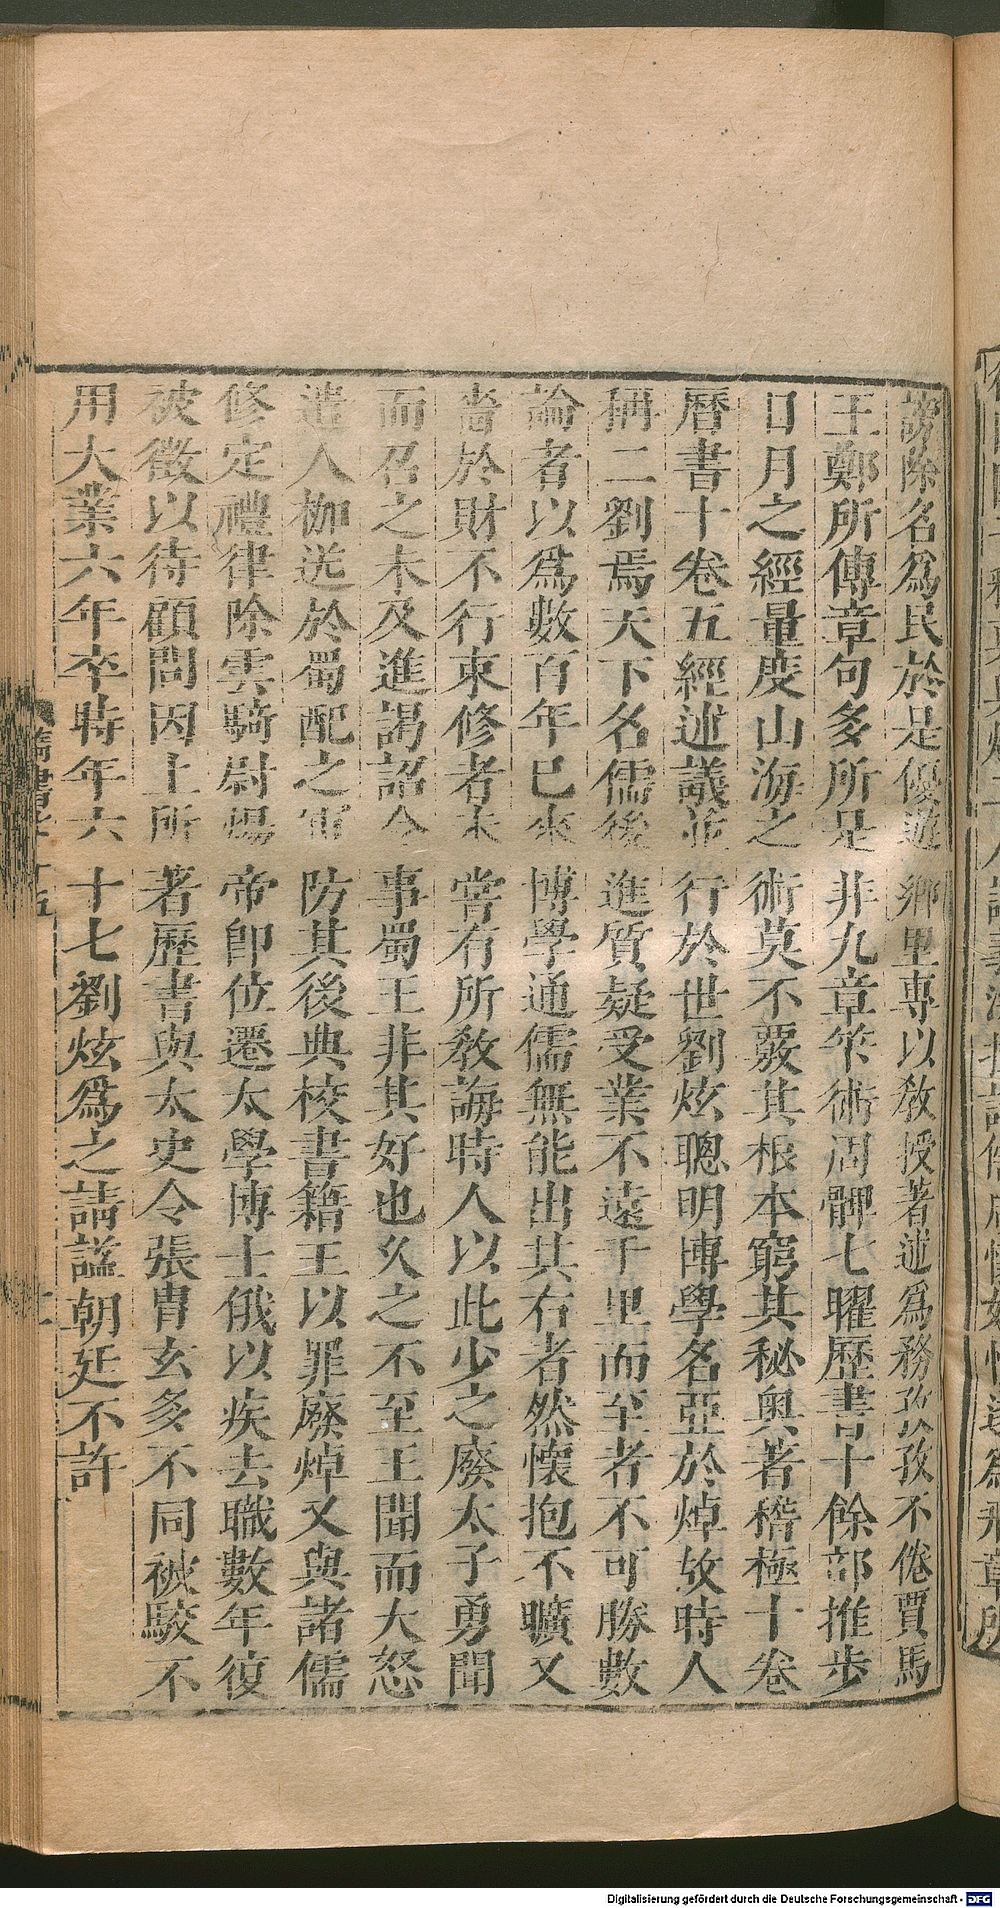 謗除名爲民於是優遊鄉里專以敎授著述爲務孜孜不倦賈馬
王鄭所傳章句多所是非九章筭術周髀七曜歷書十餘部推步
日月之經量度山海之術莫不覈其根本窮其秘奥著稽極十卷
曆書十卷五經述議並行於世劉炫聰明博學名亞於焯故時人
稱二劉焉天下名儒後進質疑受業不遠千里而至者不可勝數
論者以爲數百年已來博學通儒無能出其右者然懷抱不曠又
嗇於財不行束修者未嘗有所敎誨時人以此少之廢太子勇聞
而召之未及進謁詔令事蜀王非其好也久之不至王聞而大怒
遣人枷送於蜀配之軍防其後典校書籍王以罪廢焯又與諸儒
修定禮律除雲騎尉煬帝卽位遷太學博士俄以疾去職數年復
被徵以待顧問因上所著歷書與太史令張胄玄多不同被駁不
用大業六年卒時年六十七劉炫爲之請謚朝廷不許
Digitalisierung gefördert durch die Deutsche Forschungsgemeinschaft - DFG